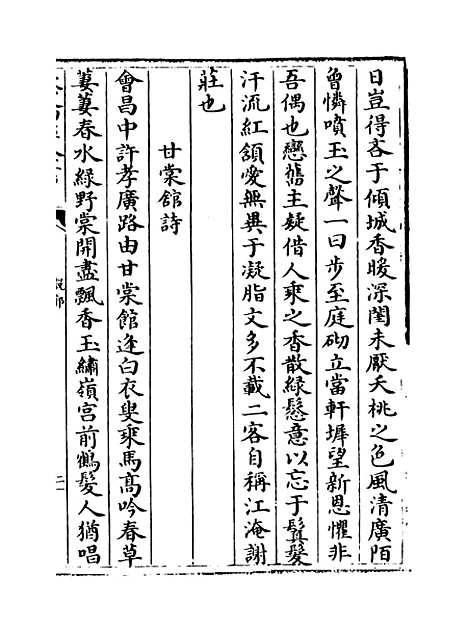 日豈得吝于傾城香暖深閨未厭夭桃之色風清廣陌
曾憐噴玉之聲一曰步至庭砌立當軒墀望新恩懼非
吾偶也戀舊主疑借人乘之香散緑鬉意以忘于鬒髮
汗流紅頷愛無異于凝脂文多不載二客自稱江淹謝
莊也
甘棠館詩
會昌中許孝廣路由甘棠館逢白衣叟乘馬高吟春草
萋萋春水綠野棠開盡飄香玉繡嶺宫前鶴髮人猶唱
説郛
二一